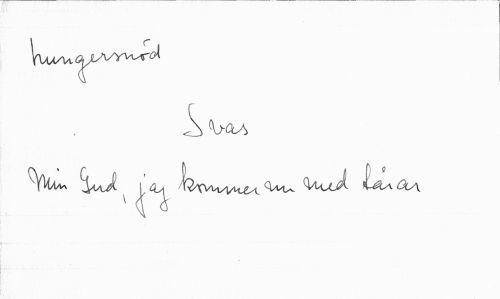 hungersnöd
Svas
Min Gud, jag kommer nu med tårar